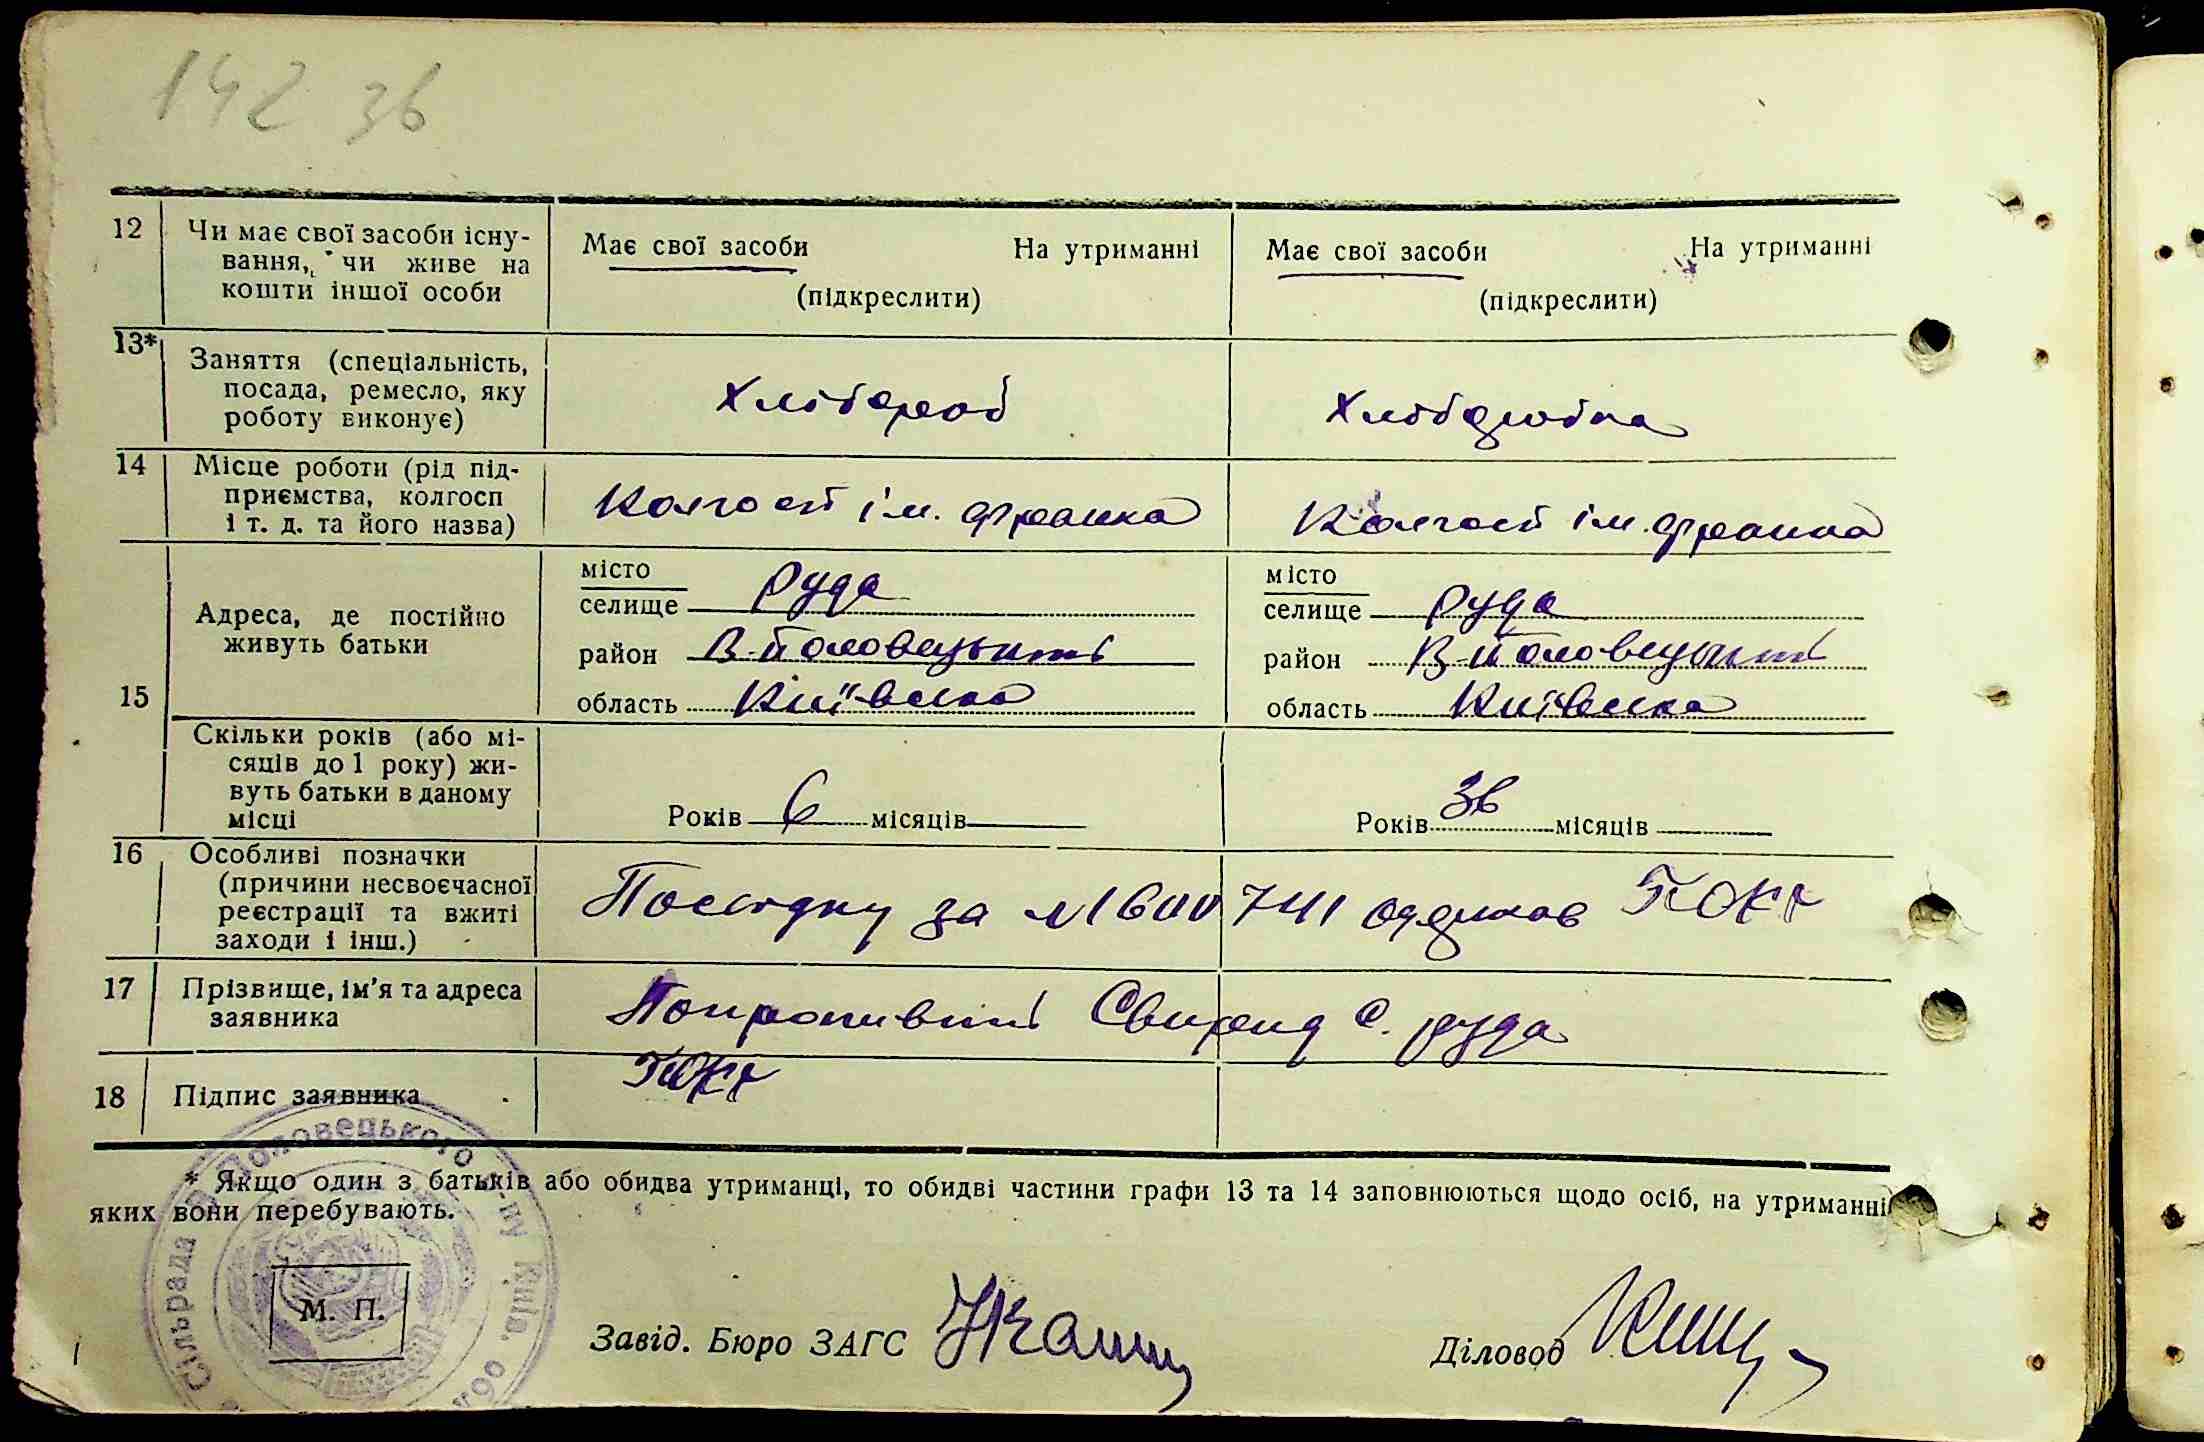 142 зв
12 Чи має свої засоби існу-
вання, чи живе на
кошти іншої особи
Має свої засоби На утриманні
(підкреслити)
Має свої засоби На утриманні
(підкреслити)
13* Заняття (спеціальність,
посада, ремесло, яку
роботу виконує)
Хлібороб
Хліборобка
14 Місце роботи (рід під-
приємства, колгосп
і т. д. та його назва)
Колгосп ім. Франка
Колгосп ім. Франка
15 Адреса, де постійно
живуть батьки
місто
селище Руда
район В-Половецький
область Київська
місто
селище Руда
район В-Половецький
область Київська
Скільки років (або мі-
сяців до 1 року) жи-
вуть батьки в даному
місці
Років 6 місяців
Років 36 місяців
16 Особливі позначки
(причини несвоєчасної
реєстрації та вжиті
заходи і інш.)
за № 1600741 одержав
17 Прізвище, ім'я та адреса
заявника
Свирид с. Руда
18 Підпис заявника
* Якщо один з батьків або обидва утриманці, то обидві частини графи 13 та 14 заповнюються щодо осіб, на утриманні
яких вони перебувають.
Сільрада Половецького р-ну Київ. обл.
М. П.
Завід. Бюро ЗАГС
Діловод